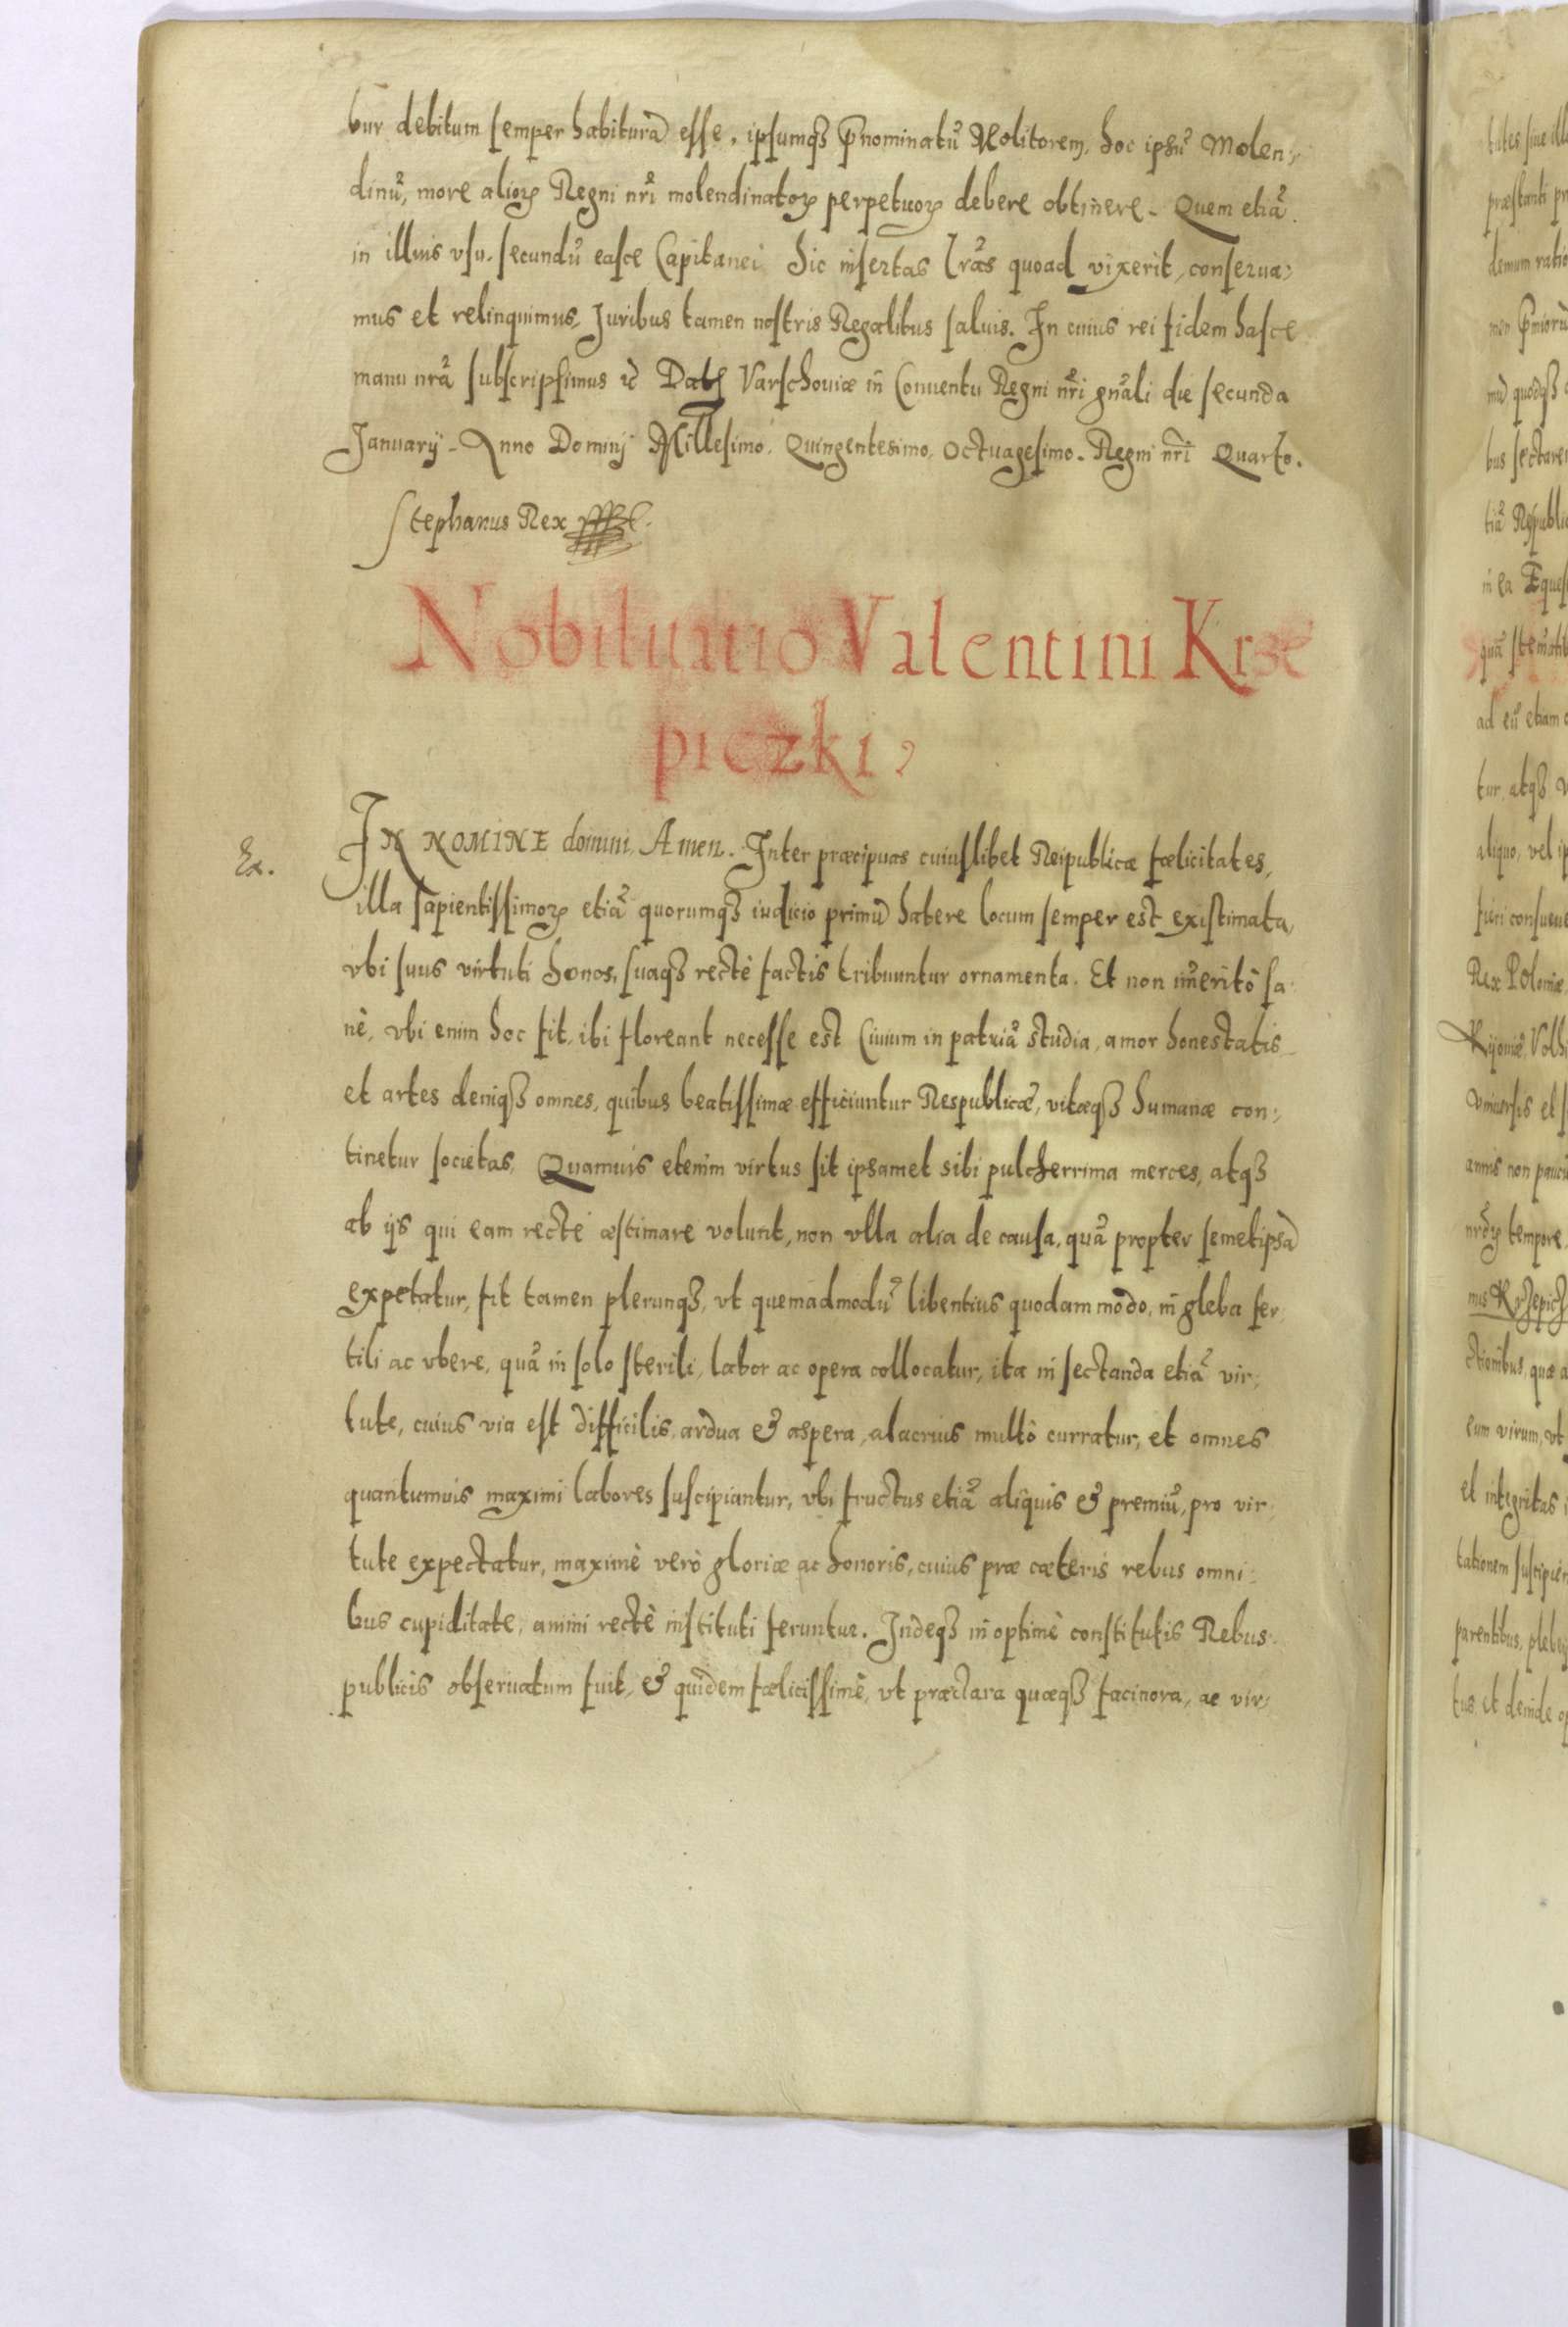 tur debitum semper habiturã esse, ipsumqꝫ p̃nominatũ Molitorem, hoc ipsũ Molen⸗
dinũ, more alioꝝ Regni nr̃i molendinatoꝝ perpetuoꝝ debere obtinere. Quem etiã
in illius vsu, secundũ easce Capitanei hic insertas Lr̃as quoad vixerit, conserua⸗
mus et relinquimus, Juribus tamen nostris Regalibus saluis. In cuius rei fidem hasce
manu nrã subscripsimus &c Dat Varschouiæ in Conuentu Regni nr̃i gñali die secunda
Januarÿ Anno Dominj Millesimo, Quingentesimo, Octuagesimo. Regni nr̃i Quarto.
Stephanus Rex
Nobilitatio Valentini Krze
piczki,
Ex.
IN NOMINE domini Amen. Inter præcipuas cuiuslibet Reipublicæ fælicitates,
illa sapientissimoꝝ etiã quorumqꝫ iudicio primũ habere locum semper est existimata,
vbi suus virtuti honos, suaqꝫ rectè factis tribuuntur ornamenta. Et non im̃eritò sa⸗
nè, vbi enim hoc fit, ibi floreant necesse est Ciuium in patriã studia, amor honestatis
et artes deniqꝫ omnes, quibus beatissimæ efficiuntur Respublicæ, vitæqꝫ humanæ con⸗
tinetur societas. Quamuis etenim virtus sit ipsamet sibi pulcherrima merces, atqꝫ
ab ijs qui eam rectè æstimare volunt, non vlla alia de causa, quã propter semetipsã
expetatur, fit tamen plerunqꝫ, vt quemadmodũ libentius quodammodo, in gleba fer⸗
tili ac vbere, quã in solo sterili, labor ac opera collocatur, ita in sectanda etiã vir⸗
tute, cuius via est difficilis, ardua & aspera, alacrius multò curratur, et omnes
quantumuis maximi labores suscipiantur, vbi fructus etiã aliquis & premiũ, pro vir⸗
tute expectatur, maximè verò gloriæ ac honoris, cuius præ cæteris rebus omni⸗
bus cupiditate, animi rectè instituti feruntur. Indeqꝫ in optimè constitutis Rebus
publicis obseruatum fuit, & quidem fælicissimè, vt præclara quæqꝫ facinora, ac vir⸗